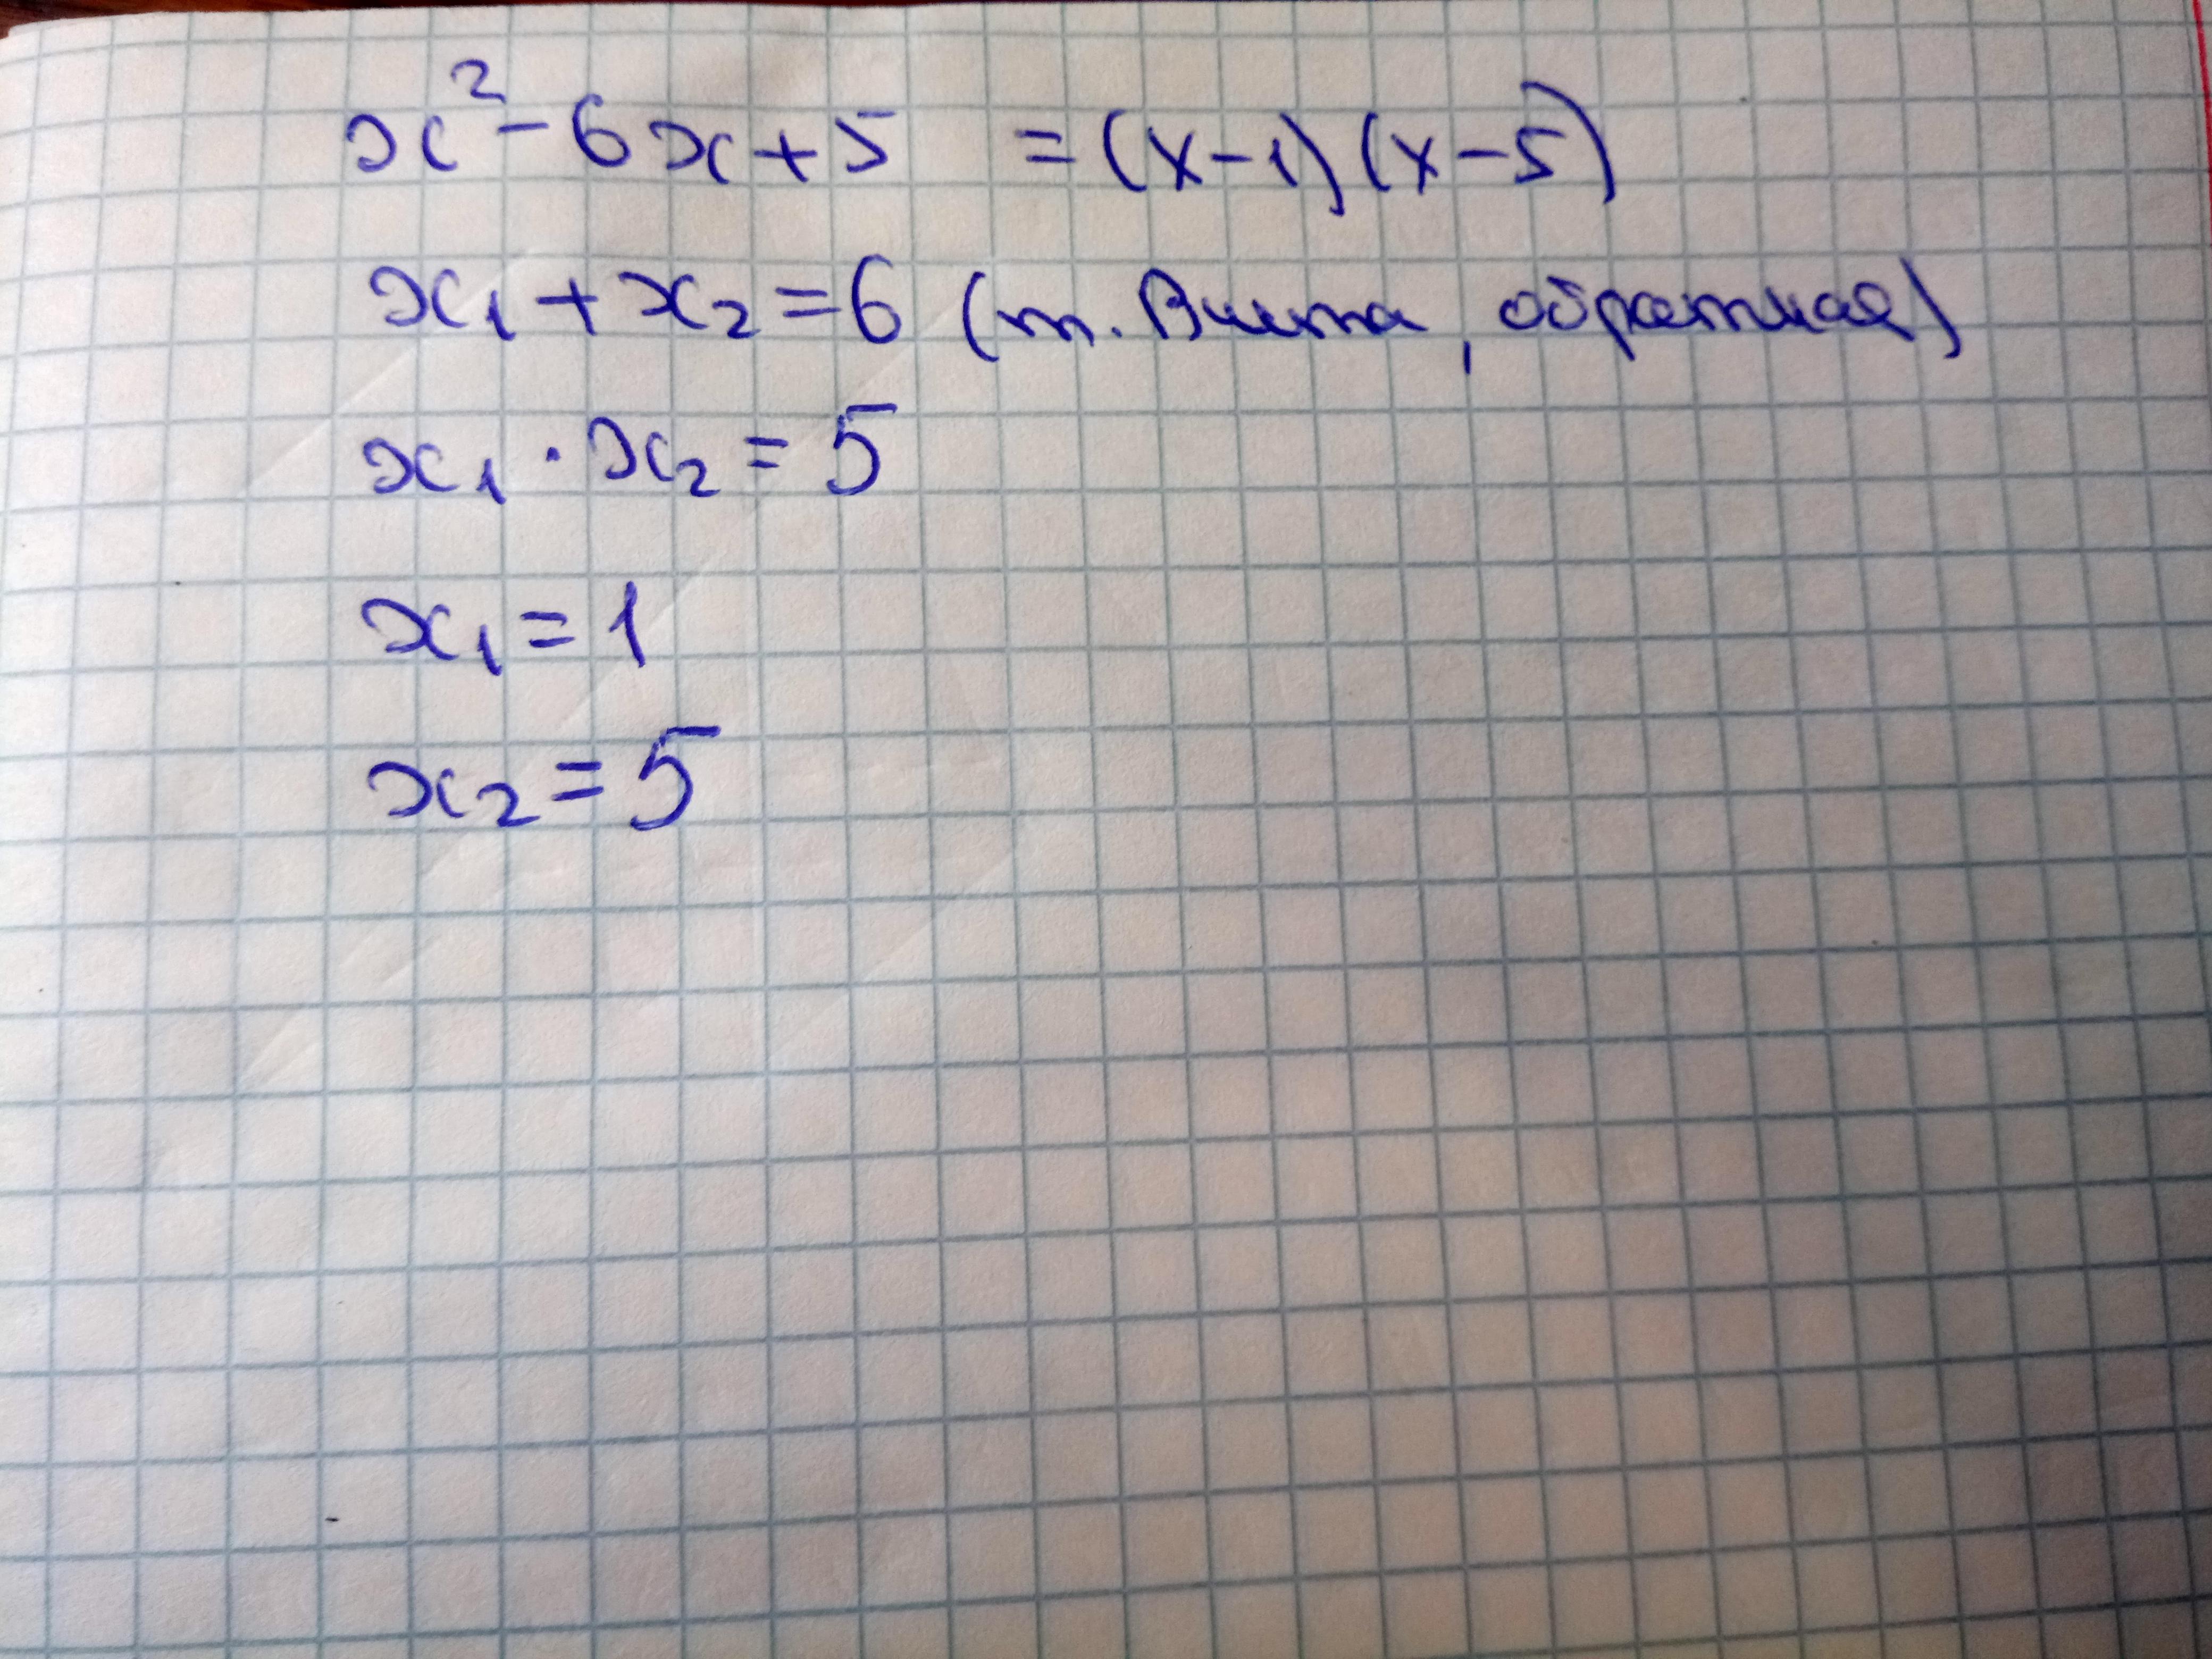 x² - 6x + 5 = (x-1)(x-5)
x₁ + x₂ = 6 (т. Виета, обратная)
x₁ · x₂ = 5
x₁ = 1
x₂ = 5